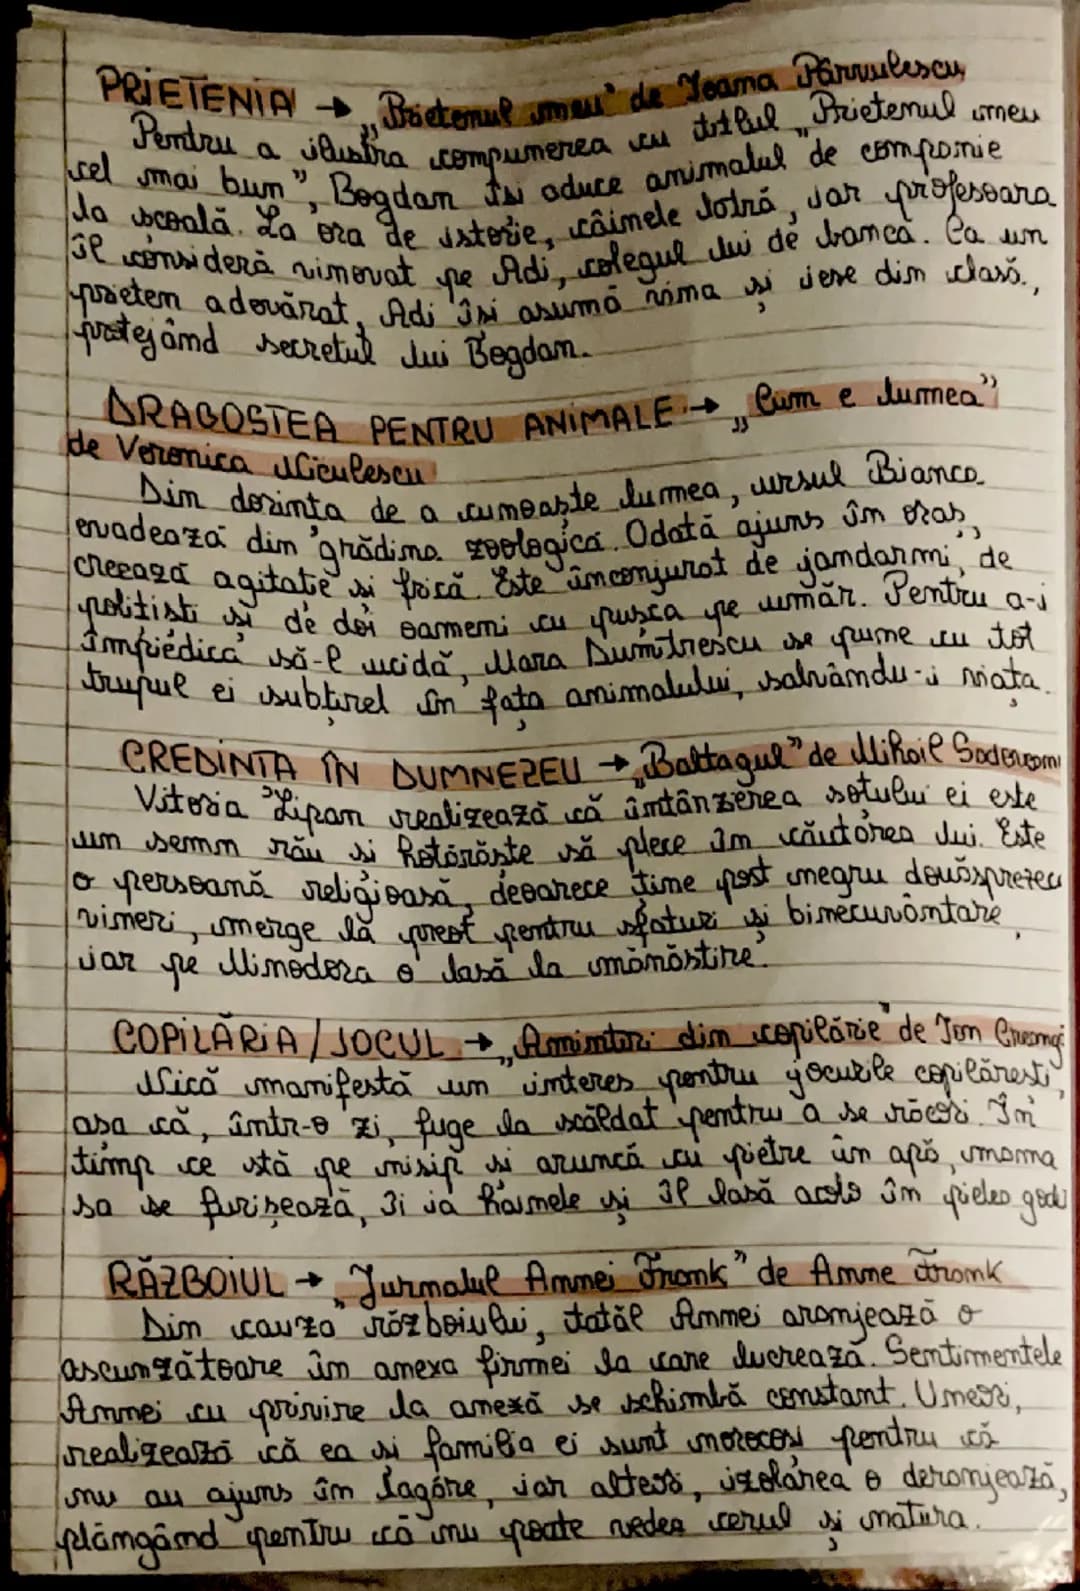 PRIETENIA → „Prietenul meu" de Ioana Pârvulescu
Pentru a ilustra compunerea cu titlul „Prietenul meu
cel mai bun", Bogdan își aduce animalul de companie
la școală. La ora de istorie, câinele latră, iar profesoara
îl consideră vinovat pe Adi, colegul lui de bancă. Ca un
prieten adevărat, Adi își asumă vina și iese din clasă,
protejând secretul lui Bogdan.
DRAGOSTEA PENTRU ANIMALE → „Cum e lumea"
de Veronica Niculescu
Din dorința de a cunoaște lumea, ursul Bianca
evadează din grădina zoologică. Odată ajuns în oraș,
creează agitație și frică. Este înconjurat de jandarmi, de
polițiști și de doi oameni cu pușca pe umăr. Pentru a-i
împiedica să-l ucidă, Mara Dumitrescu se pune cu tot
trupul ei subțirel în fața animalului, salvându-i viața.
CREDINȚA ÎN DUMNEZEU → „Baltagul" de Mihail Sadoveanu
Vitoria Lipan realizează că întânzierea soțului ei este
un semn rău și hotărăște să plece în căutarea lui. Este
o persoană religioasă, deoarece ține post negru douăsprezece
vineri, merge la preot pentru sfaturi și binecuvântare,
iar pe Minodora o lasă la mănăstire.
COPILĂRIA / JOCUL → „Amintiri din copilărie" de Ion Creangă
Nică manifestă un interes pentru jocurile copilărești,
așa că, într-o zi, fuge la scăldat pentru a se răcori. În
timp ce stă pe nisip și aruncă cu pietre în apă, mama
sa se furișează, îi ia hainele și îl lasă acolo în pielea goală
RĂZBOIUL → „Jurnalul Annei Frank" de Anne Frank
Din cauza războiului, tatăl Annei aranjează o
ascunzătoare în anexa firmei la care lucrează. Sentimentele
Annei cu privire la anexă se schimbă constant. Uneori,
realizează că ea și familia ei sunt norocoși pentru că
nu au ajuns în lagăre, iar alteori, izolarea o deranjează,
plângând pentru că nu poate vedea cerul și natura.